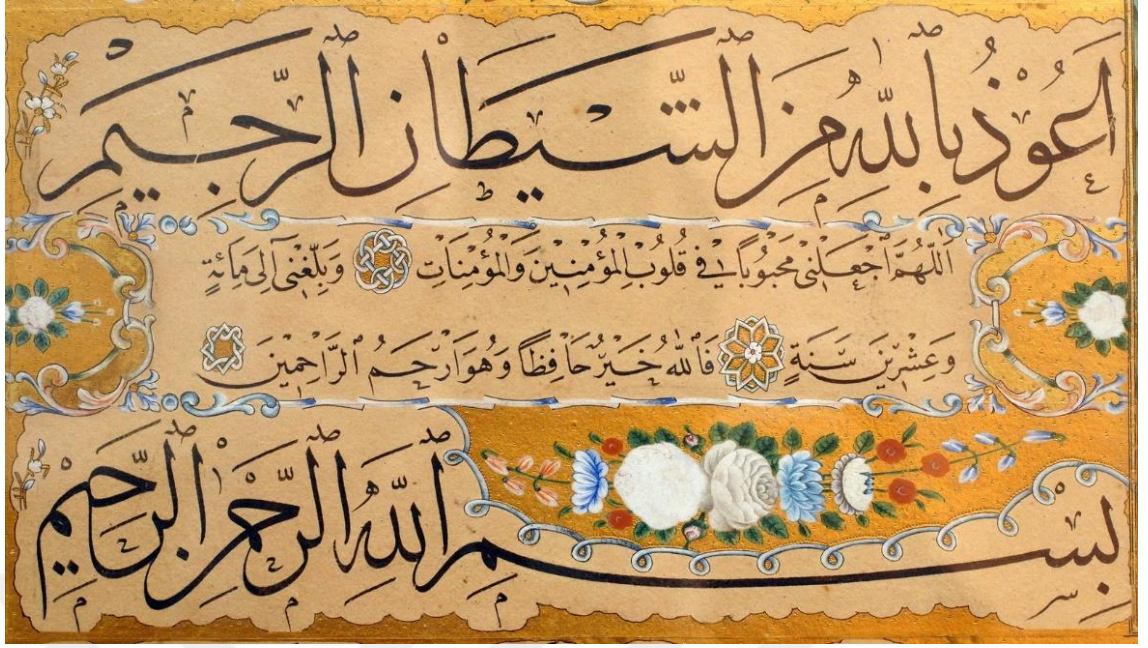 اَعُوذُ بِاللّٰهِ مِنَ الشَّيْطَانِ الرَّجِيمِ
اَللّٰهُمَّ اجْعَلْنٖى مَحْبُوبًا فٖى قُلُوبِ الْمُؤْمِنٖينَ وَالْمُؤْمِنَاتِ وَبَلِّغْنٖى اِلٰى مِائَةٍ
وَعِشْرٖينَ سَنَةٍ فَاللّٰهُ خَيْرٌ حَافِظًا وَهُوَ اَرْحَمُ الرَّاحِمٖينَ
بِسْمِ اللّٰهِ الرَّحْمٰنِ الرَّحِيمِ